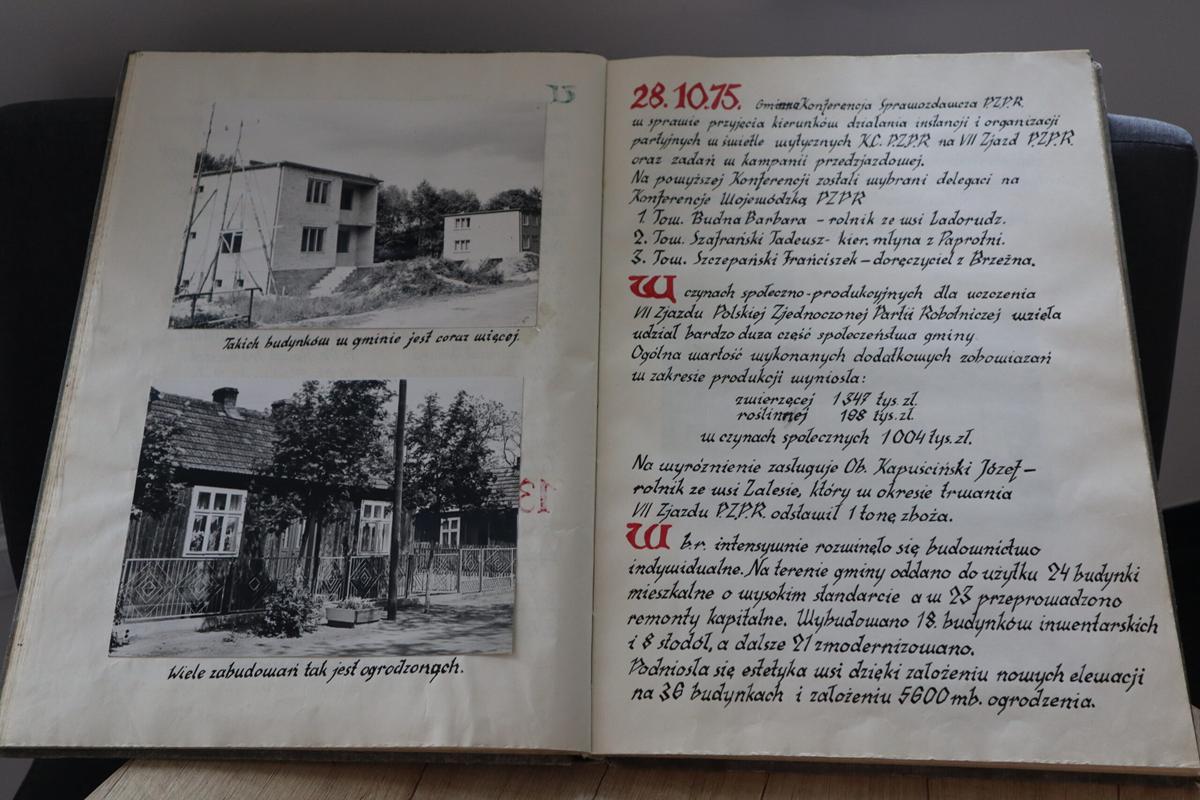 13
Takich budynków w gminie jest coraz więcej.
Wiele zabudowań tak jest ogrodzonych.
28.10.75. Gminna Konferencja Sprawozdawcza P.Z.P.R.
w sprawie przyjęcia kierunków działania instancji i organizacji
partyjnych w świetle wytycznych K.C. P.Z.P.R. na VII Zjazd P.Z.P.R.
oraz zadań w kampanii przedzjazdowej.
Na powyższej Konferencji zostali wybrani delegaci na
Konferencje Wojewódzką PZPR
1. Tow. Budna Barbara – rolnik ze wsi Ladorudz.
2. Tow. Szafrański Tadeusz- kier. młyna z Paprotni.
3. Tow. Szczepański Franciszek – doręczyciel z Brzeźna.
W czynach społeczno-produkcyjnych dla uczczenia
VII Zjazdu Polskiej Zjednoczonej Partii Robotniczej wzięła
udział bardzo duża część społeczeństwa gminy
Ogólna wartość wykonanych dodatkowych zobowiązań
w zakresie produkcji wyniosła:
zwierzęcej 1347 tys. zł.
roślinnej 198 tys. zł.
w czynach społecznych 1004 tys. zł.
Na wyróżnienie zasługuje Ob. Kapuściński Józef –
rolnik ze wsi Zalesie, który w okresie trwania
VII Zjazdu P.Z.P.R. odstawił 1 tonę zboża.
W b.r. intensywnie rozwinęło się budownictwo
indywidualne. Na terenie gminy oddano do użytku 24 budynki
mieszkalne o wysokim standarcie a w 23 przeprowadzono
remonty kapitalne. Wybudowano 18. budynków inwentarskich
i 8 stodół, a dalsze 21 zmodernizowano.
Podniosła się estetyka wsi dzięki założeniu nowych elewacji
na 36 budynkach i założeniu 5600 mb. ogrodzenia.